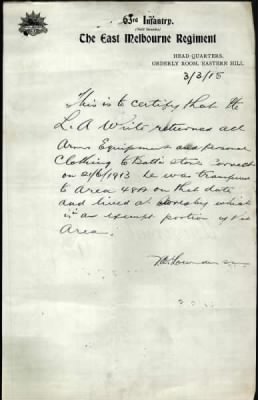 63rd Infantry.
The East Melbourne Regiment
HEAD-QUARTERS,
ORDERLY ROOM, EASTERN HILL
3/3/15
This is to certify that
L. A. returned all
Arms Equipment and personal
Clothing to Battn store correct
on 21/6/1913 he was
to Area 48A on that date
and lived at which
is an exempt portion of
Area.